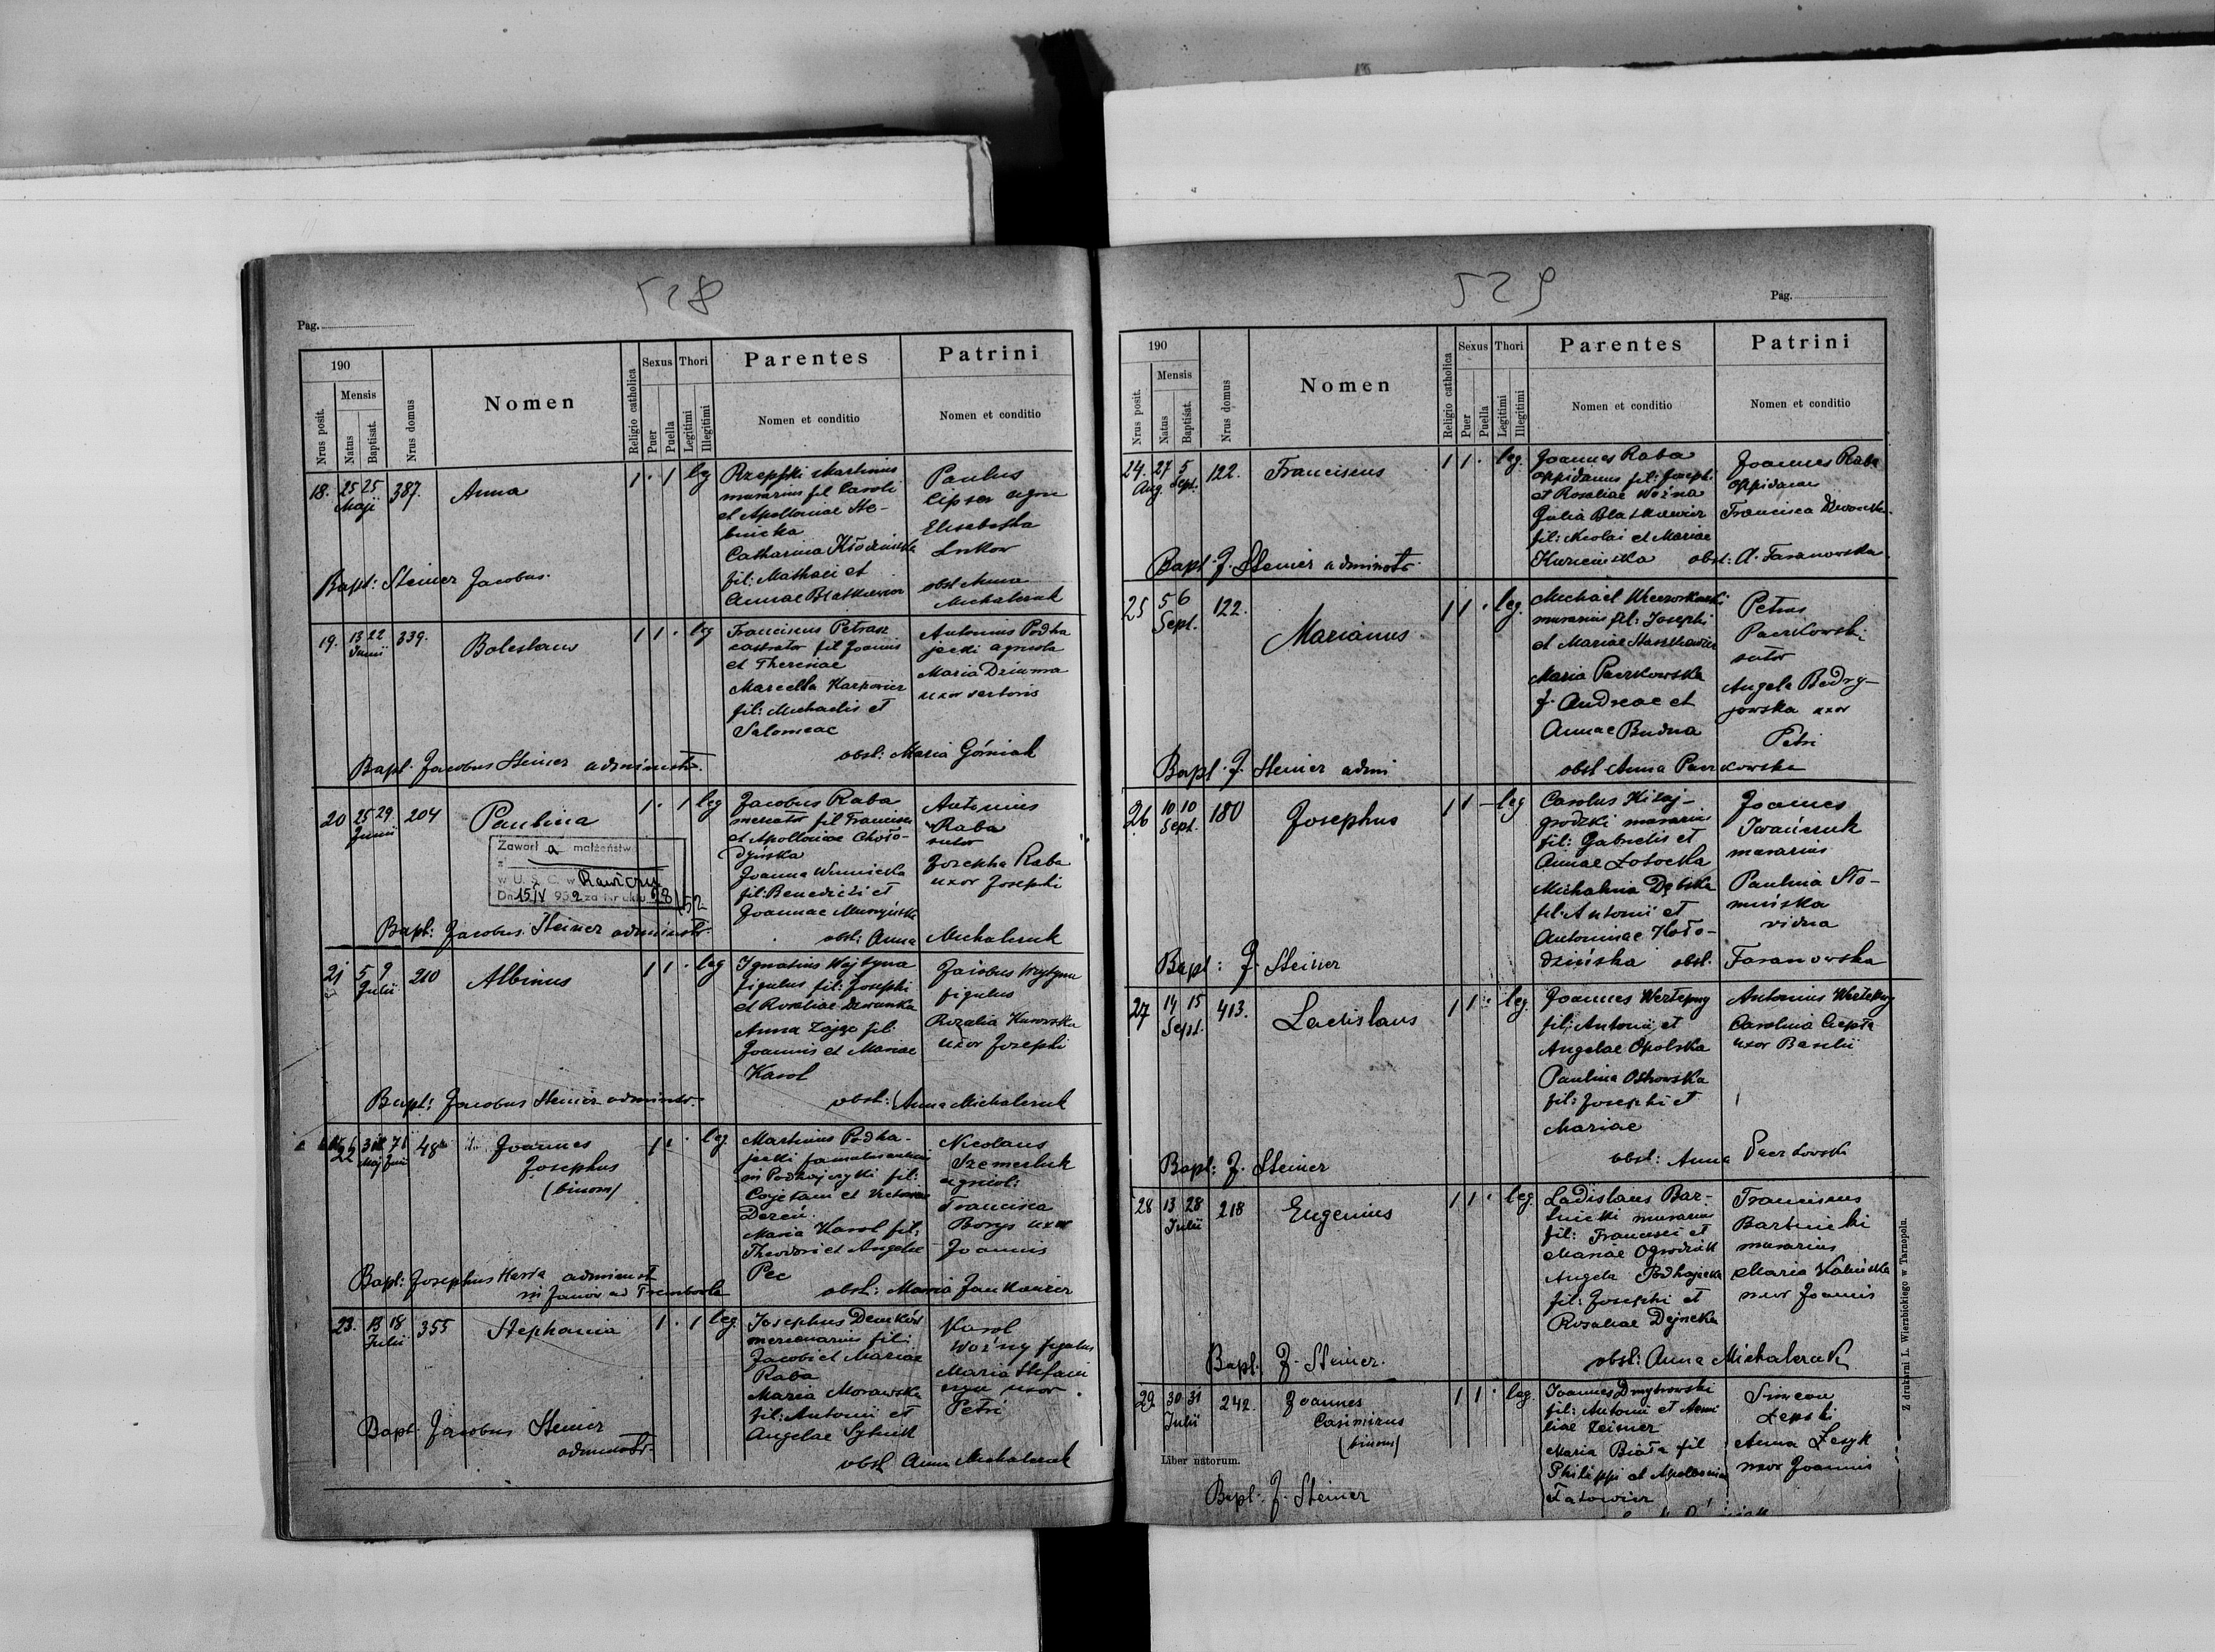 528
Pag.
190
Mensis
Nrus posit.
Natus
Baptisat.
Nrus domus
Nomen
Religio catholica
Sexus
Puer
Puella
Thori
Legitimi
Illegitimi
Parentes
Nomen et conditio
Patrini
Nomen et conditio
18. 25 25 Maji 387. Anna 1 · 1 leg
Rzepski Martinus
murarius fil Caroli
et Apolloniae
Catharina
fil: Mathaei et
Annae Blatkiewicz
Paulus
Lipser agri
Elisabetha
obst Anna
Michalczuk
Bapt: Steiner Jacobus.
19. 13 22 Junii 339. Boleslaus 1 1 · leg
Franciscus Petrasz
castrator fil Joannis
et Theresiae
Marcella Karpowicz
fil: Michaelis et
Salomeae
Antonius Podha
jecki agricola
Maria Dziuma
uxor sartoris
obst: Maria Górniak
Bapt. Jacobus Steiner administr.
20 25 29 Junii 204 Paulina 1 · 1 leg
Zawarł a małżeństwo
z
w U. S. C. w Rawiczu
Dn. 15/V 952 za Nr aktu 58/52
Jacobus Raba
mercator fil Francisci
et Apolloniae Choło-
dzińska
Joanna Winnicka
fil: Benedicti et
Joannae
Antonius
Raba
sutor
Josepha Raba
uxor Josephi
obst: Anna Michalczuk
Bapt: Jacobus Steiner administr.
21 5 9 Julii 210 Albinus 1 1 · leg
Ignatius Wojtyna
figulus fil: Josephi
et Rosaliae Dzwonka
Anna Zając fil:
Joannis et Mariae
Karol
Jacobus Wojtyna
figulus
Rozalia Kurowska
uxor Josephi
obst: Anna Michalczuk
Bapt: Jacobus Steiner administr.
22 48 Joannes
Josephus
(binom)
1 1 · leg.
Martinus Podha-
jecki
in Podhajczyki fil:
Cajetani et Victoriae
Dereń.
Maria Karol fil:
Theodori et Angelae
Pec
Nicolaus
Szemerluk
agricol:
Francisca
Borys uxor
Joannis
obst: Maria Jankowicz
Bapt: Josephus administ
in Janow ad Trembowla
23. 13 18 Julii 355 Stephania 1 · 1 leg.
Josephus Demków
mercenarius fil:
Jacobi et Mariae
Raba
Maria Morawska
fil: Antonii et
Angelae Sytnik
Karol
Woźny figulus
Maria Stefani
szyn uxor
Petri
obst Anna Michalczuk
Bapt. Jacobus Steiner
administr.
529
Pag.
190
Mensis
Nrus posit.
Natus
Baptisat.
Nrus domus
Nomen
Religio catholica
Sexus
Puer
Puella
Thori
Legitimi
Illegitimi
Parentes
Nomen et conditio
Patrini
Nomen et conditio
24. 27 Aug. 5 Sept. 122. Franciscus 1 1 · leg.
Joannes Raba
oppidanus fil: Josephi
et Rosaliae Woźna
Julia Blatkiewicz
fil: Nicolai et Mariae
Kuzieniska
Joannes Raba
oppidanus
Francisca
obst: A. Taranowska
Bapt. J. Steiner administr.
25 5 6 Sept. 122. Marianus 1 1 · leg.
Michael
murarius fil: Josephi
et Mariae Staszkiewicz
Maria Paczkowska
f. Andreae et
Annae Budna
Petrus
Paczkowski
sutor
Angela Bedry-
jowska uxor
Petri
obst Anna Paczkowska
Bapt. J. Steiner admi
26 10 10 Sept. 180 Josephus 1 1 — leg
Carolus Kitaj-
grodzki murarius
fil: Gabrielis et
Annae Łotocka
Michalina Dębska
fil: Antonii et
Antoninae Koło-
dzińska
Joannes
Iwańczuk
murarius
Paulina Sło-
mińska
vidua
obst. Taranowska
Bapt: J. Steiner
27 14 15 Sept. 413. Ladislaus 1 1 · leg.
Joannes Wertepny
fil: Antonii et
Angelae Opolska
Paulina Ostrowska
fil: Josephi et
Mariae
Antonius Wertepny
Carolina Ciepła
uxor Basilii
obst: Anna Paczkowski
Bapt: J. Steiner
28 13 28 Julii 218 Eugenius 1 1 · leg.
Ladislaus Bar-
tnicki murarius
fil: Francisci et
Mariae Ogrodnik
Angela Podhajecka
fil: Josephi et
Rosaliae Dejneka
Franciscus
Bartnicki
murarius
Maria Kalińska
uxor Joannis
obst: Anna Michalczuk
Bapt. J. Steiner.
29 30 31 Julii 242. Joannes
Casimirus
(binom)
1 1 · leg.
Joannes Dmytrowski
fil: Antonii et Aemi
liae Zeimer
Maria Biała fil
Philippi et Apolloniae
Fatowicz
Simeon
Łepski
Anna Lesyk
uxor Joannis
Liber natorum.
Bapt. J. Steiner
Z drukarni L. Wierzbickiego w Tarnopolu.